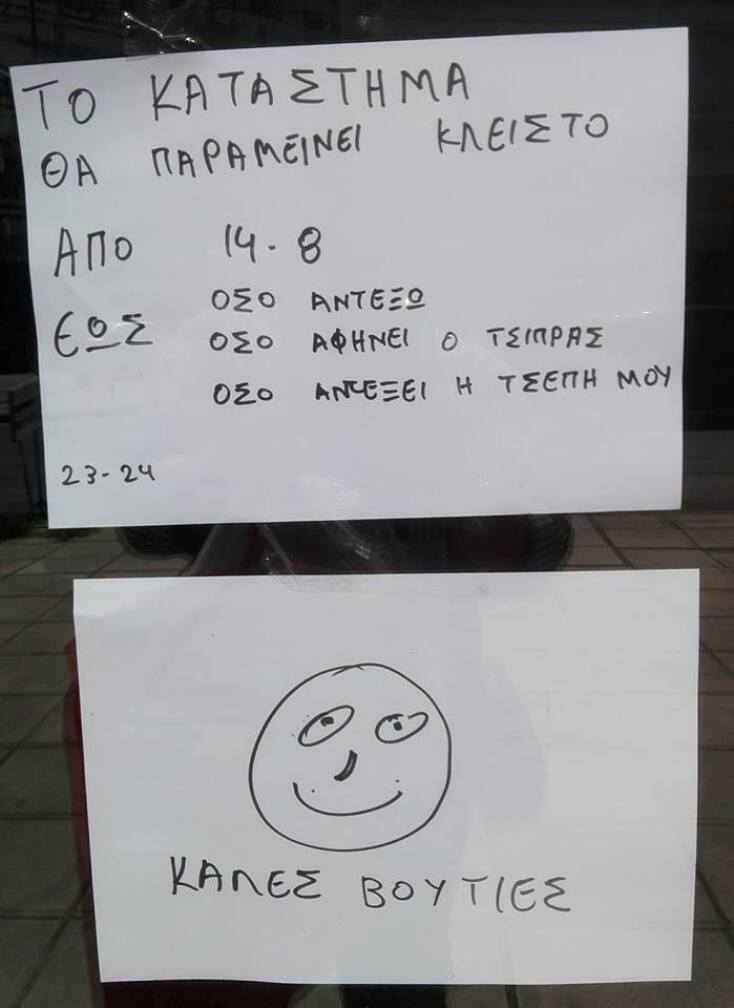 ΤΟ ΚΑΤΑΣΤΗΜΑ
ΘΑ ΠΑΡΑΜΕΙΝΕΙ ΚΛΕΙΣΤΟ
ΑΠΟ 14-8
ΕΩΣ ΟΣΟ ΑΝΤΕΞΩ
ΟΣΟ ΑΦΗΝΕΙ Ο ΤΣΙΠΡΑΣ
ΟΣΟ ΑΝΤΕΞΕΙ Η ΤΣΕΠΗ ΜΟΥ
23-24
ΚΑΛΕΣ ΒΟΥΤΙΕΣ